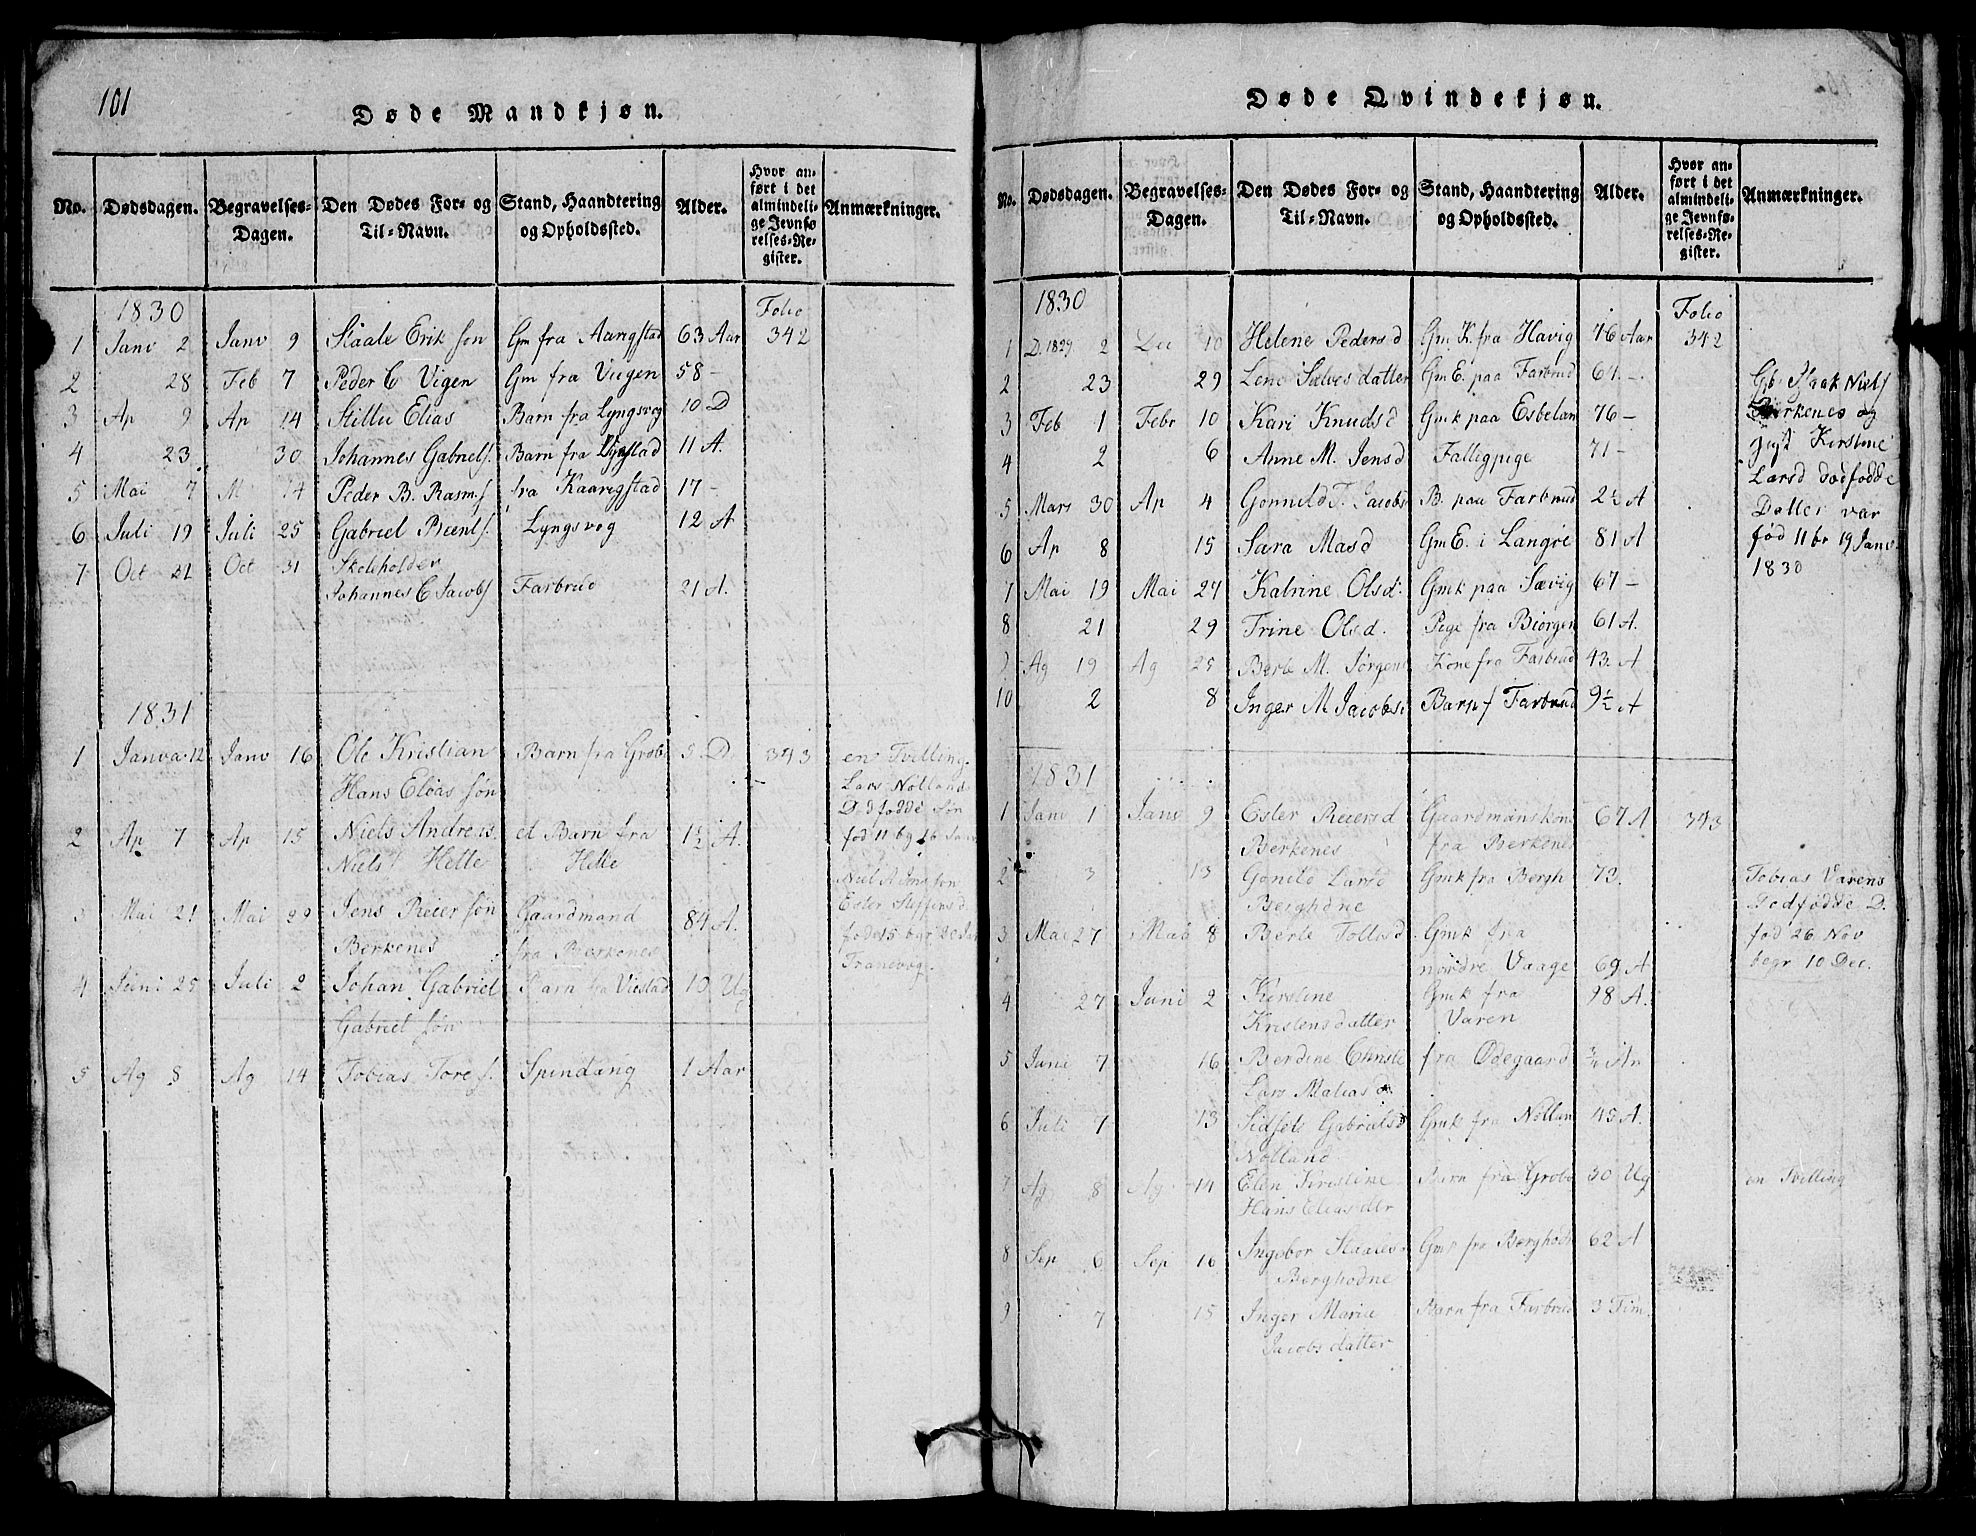 101
Døde Mandkjøn.
No. Dødsdagen. Begravelses-Dagen. Den Dødes For- og Til-Navn. Stand, Haandtering og Opholdssted. Alder. Hvor anført i det almindelige Jevnførelses-Register. Anmærkninger.
1830 Folio
1 Janv 2 Janv 9 Staale Erik søn Gm fra Aangstad 63 Aar 342
2 28 Feb 7 Peder C Vigen Gm fra Viigen 58 -
3 Ap 9 Ap 14 Stillu Elias Barn fra Lyngsvog 10 D
4 23 30 Johannes Gabriels. Barn fra 11 A.
5 Mai 7 M 14 Peder B. Rasm.s fra Kaarigstad 17 -
6 Juli 19 Juli 25 Gabriel Beents. Lyngsvog 12 A
7 Oct 21 Oct 31 Skoleholder
Johannes C Jacobs Farbrud 21 A.
1831
1 Janva 12 Janv 16 Ole Kristian Barn fra Grobs 5 D 343 en Tvilling.
Hans Elias søn Lars Nolland
D dfødde Søn
2 Ap 7 Ap 15 Niels Andreas et Barn fra 1½ A. fød 11 bg 16 Janv
Niels Hette Hette
3 Mai 21 Mai 29 Jens Reier søn Gaardmand 84 A. Ester Steffensd
Berkenes fra Berkenes Tranevog.
4 Juni 25 Juli 2 Johan Gabriel Barn fra Viestad 10 Ug
Gabriel søn
5 Ag 8 Ag 14 Tobias Tores. Spindang 1 Aar
Døde Qvindekjøn.
No. Dødsdagen. Begravelses-Dagen. Den Dødes For- og Til-Navn. Stand, Haandtering og Opholdssted. Alder. Hvor anført i det almindelige Jevnførelses-Register. Anmærkninger.
1830 Folio
1 D. 1829 2 10 Helene Pedersd Gm. K. fra Havig 76 Aar 342
2 23 29 Lene Salves datter Gm E. paa Farbrud 61 - Gb Isaak Niels
3 Feb 1 Febr 10 Kari Knudsd Gmk paa Esbelan 76 - Berkenes og
4 2 6 Anne M. Jensd Falligpige 71 - gigt Kirstine
5 Mars 30 Ap 4 Gonnild T. Jacobs B. paa Farbrud 2½ A Larsd dødfødde
6 Ap 8 15 Sara Masd Gm E. i Langre 81 A Datter var
7 Mai 19 Mai 27 Katrine Olsd. Gmk paa Sævig 67 - fød 11 br 19 Janv.
8 21 29 Trine Olsd. Pige fra Biorgen 61 A. 1830
9 Ag 19 Ag 25 Berte M. Jørgens Kone fra Farbrud 43 A
10 2 8 Inger M Jacobs. Barn f Farbrud 9½ A
1831
1 Janv 1 Janv 9 Ester Reiersd Gaardmanskone 67 A 343
Berkenes fra Berkenes
2 3 13 Gonild Larsd Gmk fra Bergh 73. Tobias Varens
Berghdne Dødfødde D.
3 Mai 27 Mai 8 Berte Tollisd Gmk fra fød 26 Nov
nordre Vaage 69 A begr 10 Dec.
4 27 Juni 2 Kirstine Gmk fra 98 A.
Kristensdatter Varen
5 Juni 7 16 Berdine Christe fra Ødegaard ¾ Ar
Lars Matias
6 Juli 7 13 Sidsele Gabrielsd Gmk fra Nollan 45 A.
Nolland
7 Ag 8 Ag 14 Elen Kirstine Barn fra Grobs 30 Ug en Tvilling
Hans Elias dtr
8 Sep 6 Sep 16 Ingebor Staales Gmk fra Berghodn 62 A
Berghodne
9 7 15 Inger Marie Barn fra Farbrud 3 Tim.
Jacobs datter